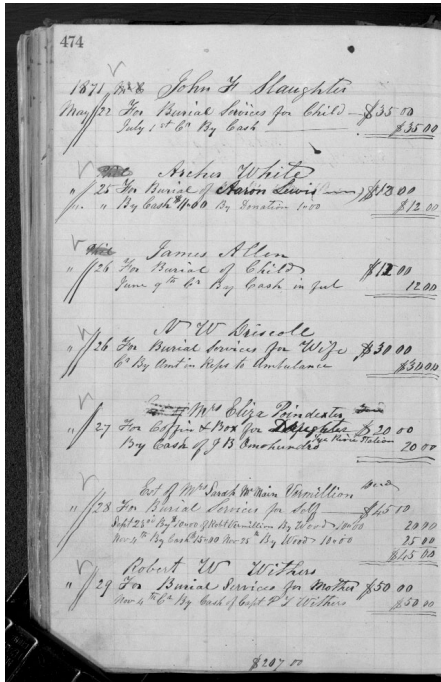 474
1871 John F Slaughter
May 22 For Burial Services for Child $35 00
July 1st Cr By Cash $35.00
Archer White
" 25 For Burial of Aaron Lewis $12 00
" " By Cash $11.00 By Donation 1.00 $12.00
James Allen
" 26 For Burial of Child $12 00
June 9th Cr By Cash in ful 12 00
N W Driscoll
" 26 For Burial Services for Wife $30 00
Cr By Amt in Repr to Ambulance $30.00
Mrs Eliza Poindexter
" 27 For Coffin & Box for Daughter $20 00
By Cash of J B Omohundro 20 00
Est of Mrs Sarah Mc Main Vermillion
" 28 For Burial Services for Self $45 00
Sept 23rd By 10.00 of Robt Vermillion By Wood 10.00 20 00
Nov 4th By Cash 15.00 Nov 25th By Wood 10.00 25 00
$45 00
Robert W Withers
" 29 For Burial Services for Mother $50 00
Nov 4th Cr By Cash of Capt P L Withers $50 00
$207 00